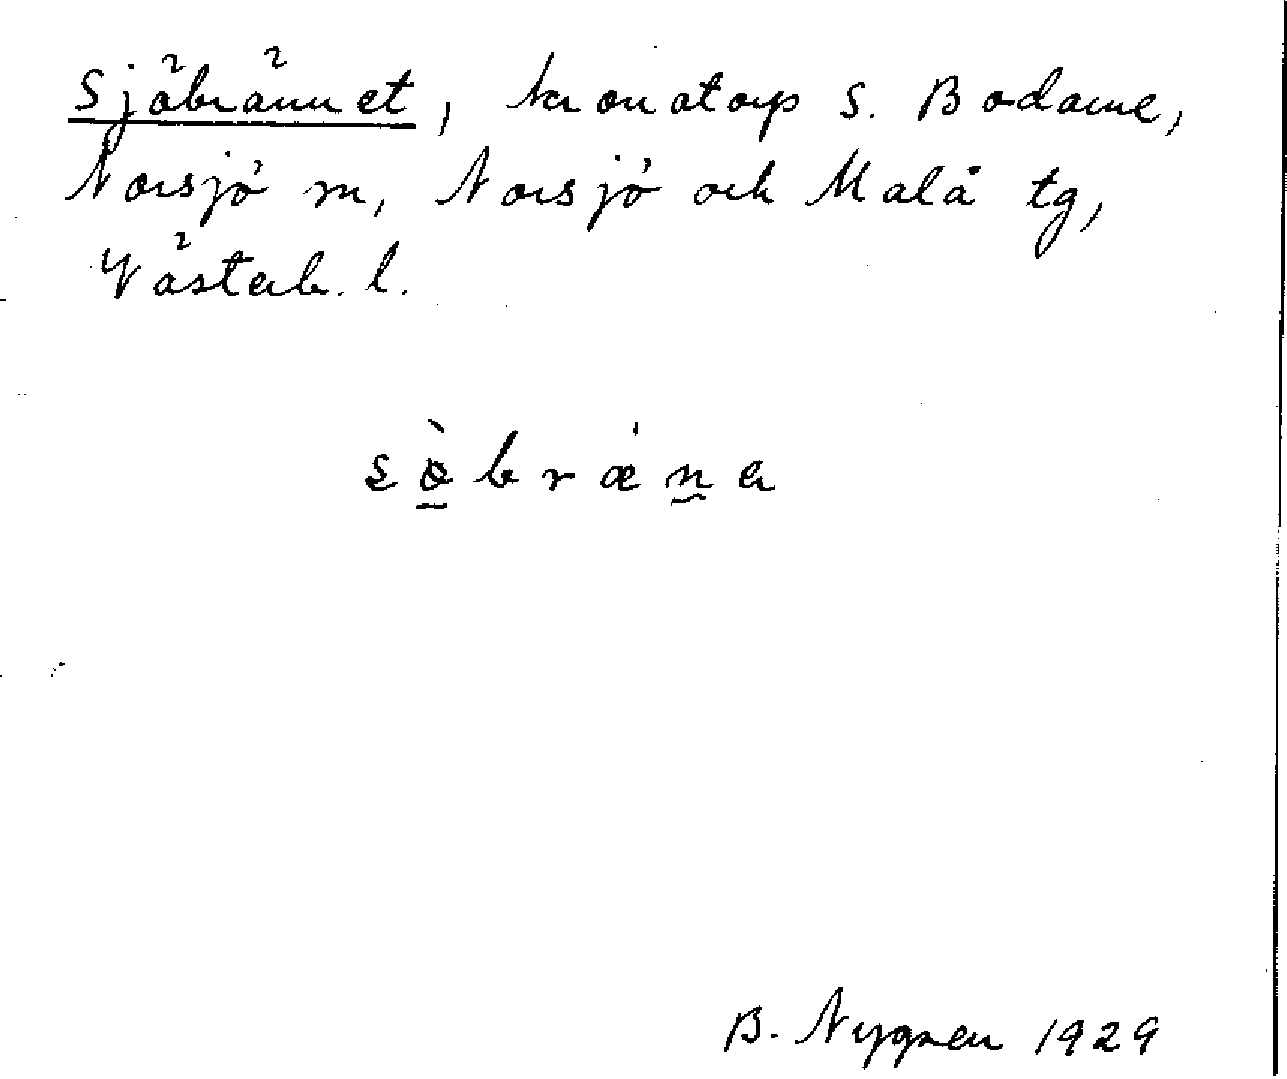 Sjöbrännet, kronotorp S. Bodarne,
Norsjö sn, Norsjö och Malå tg,
Västerb. l.
sø̀brǽna
B. Nygren 1929